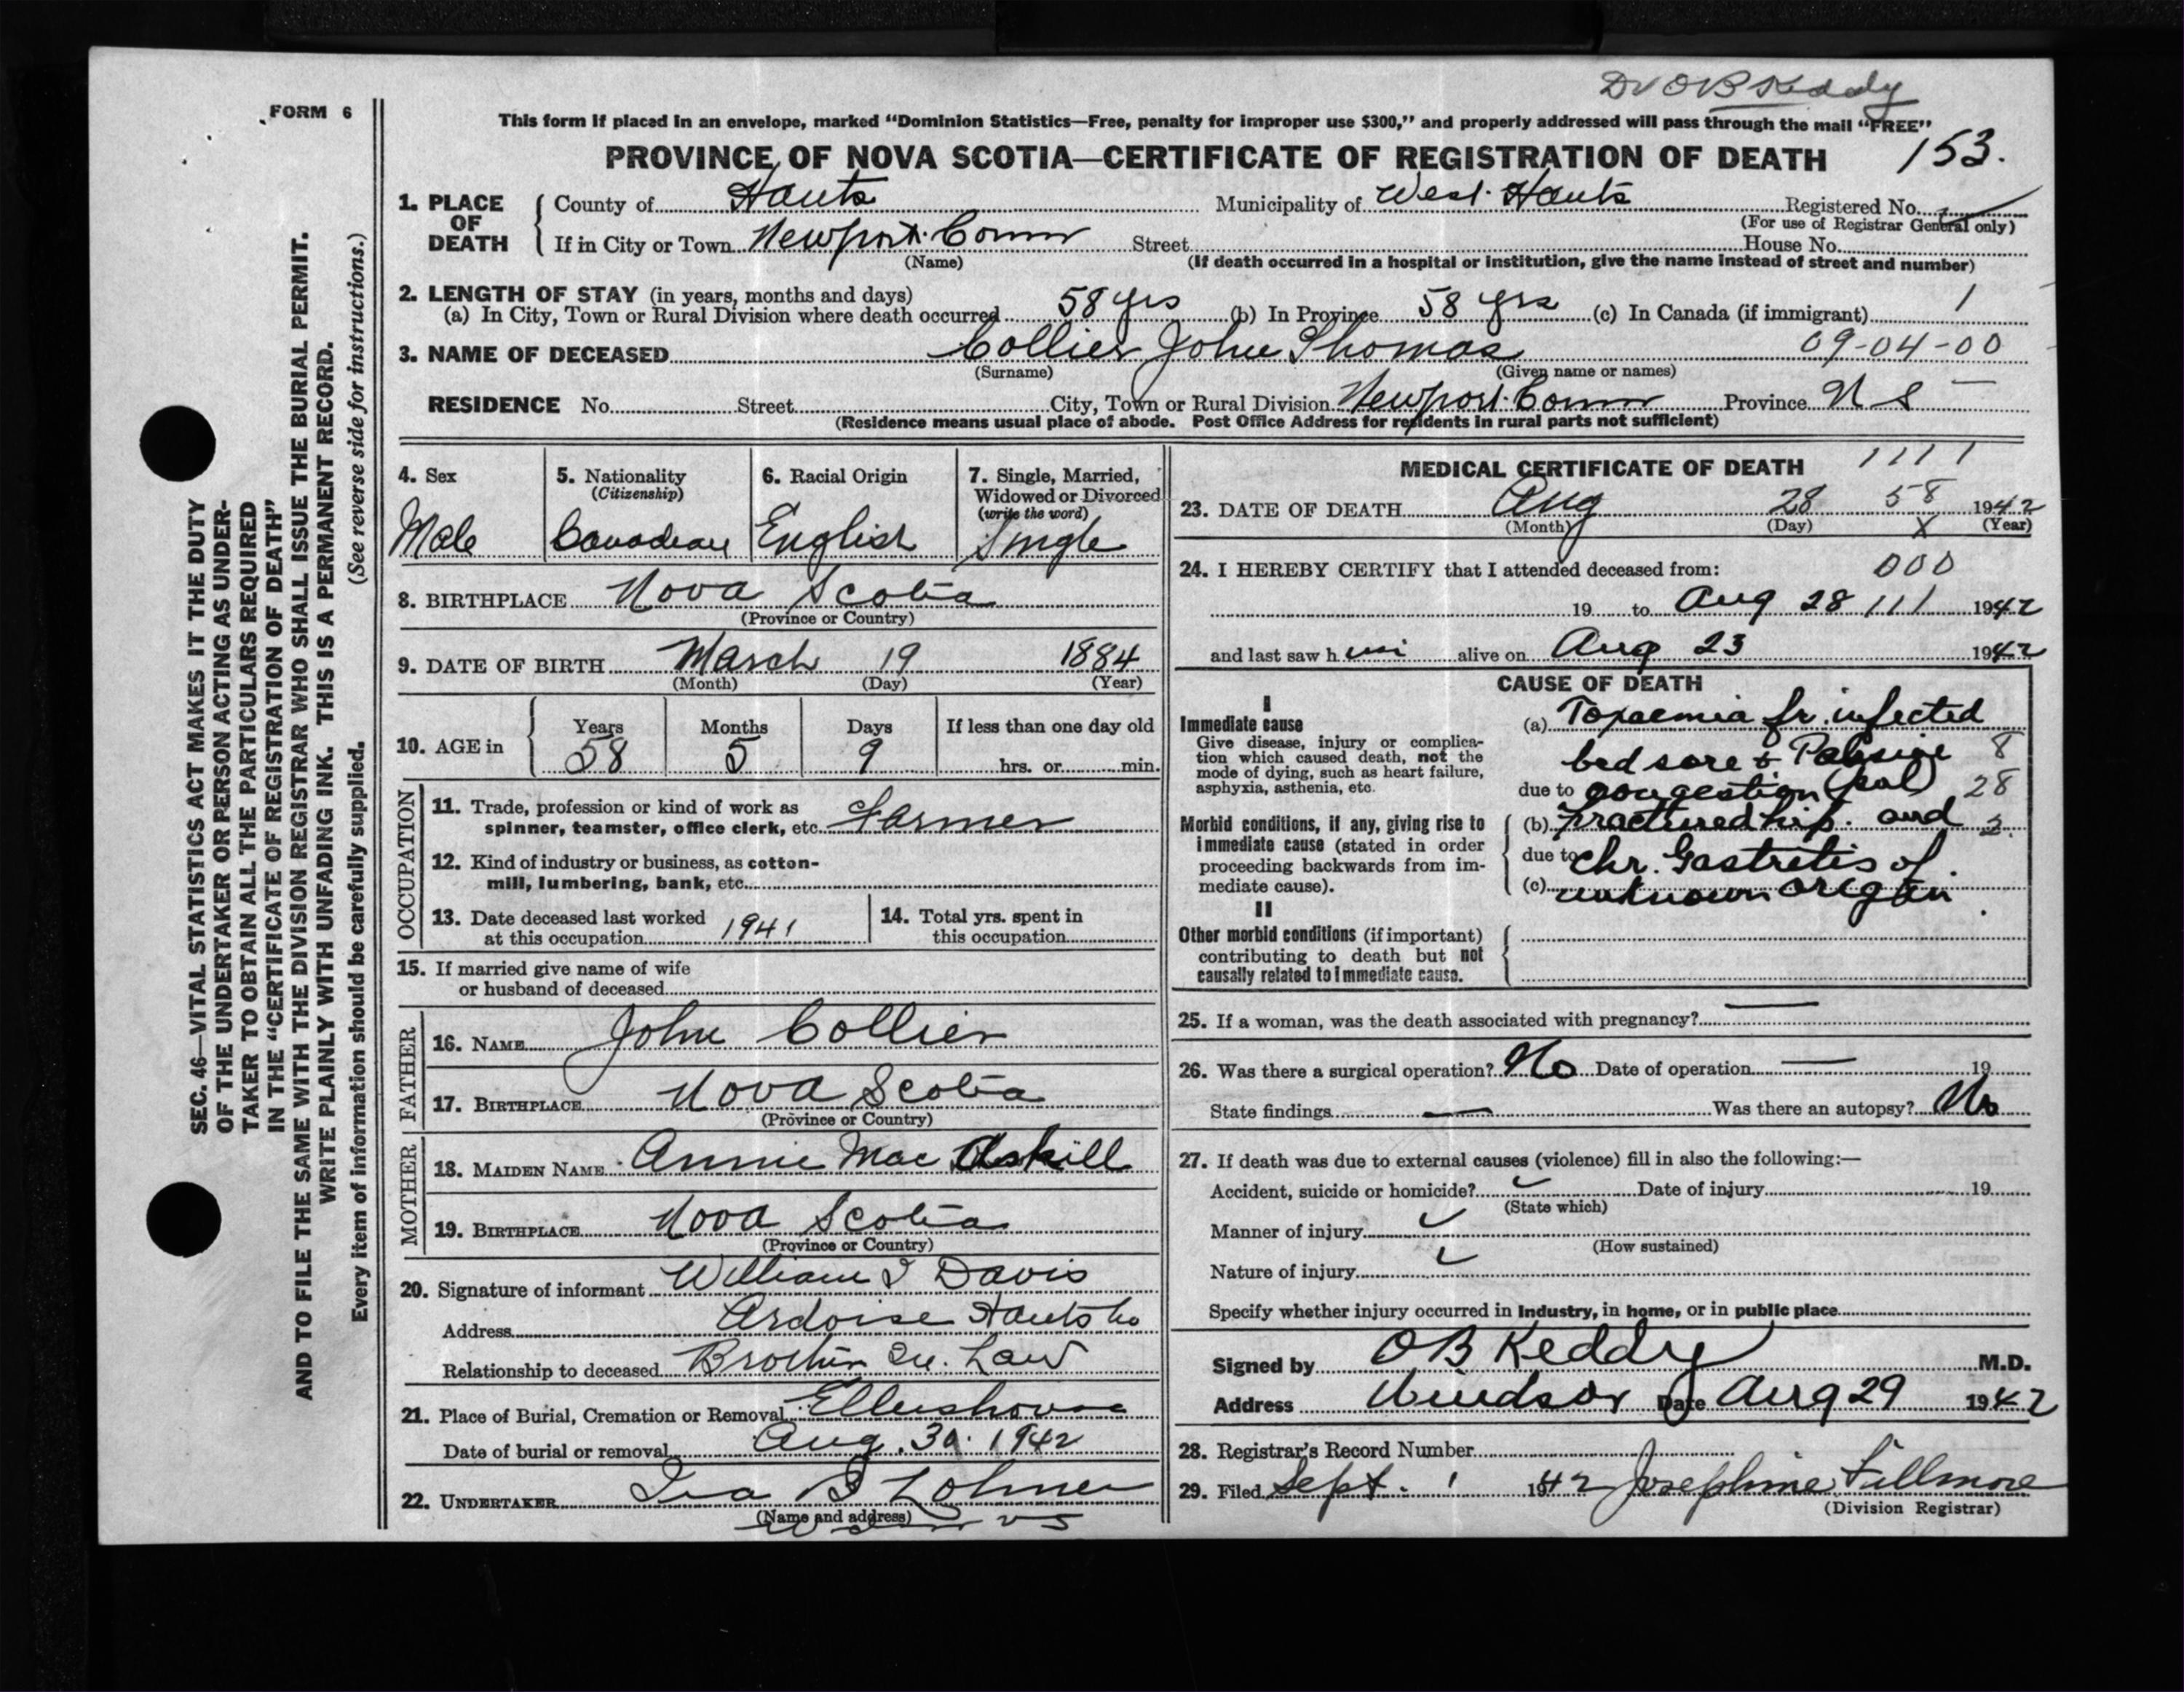 Dr O B Keddy
FORM 6
This form if placed in an envelope, marked "Dominion Statistics—Free, penalty for improper use $300," and properly addressed will pass through the mail "FREE"
PROVINCE OF NOVA SCOTIA—CERTIFICATE OF REGISTRATION OF DEATH 153.
1. PLACE OF DEATH
County of Hants Municipality of West Hants Registered No.
(For use of Registrar General only)
If in City or Town Newport Corner Street House No.
(Name) (If death occurred in a hospital or institution, give the name instead of street and number)
2. LENGTH OF STAY (in years, months and days)
(a) In City, Town or Rural Division where death occurred 58 yrs (b) In Province 58 yrs (c) In Canada (if immigrant) 1
3. NAME OF DECEASED Collier John Thomas 09-04-00
(Surname) (Given name or names)
RESIDENCE No. Street City, Town or Rural Division Newport Corner Province N S
(Residence means usual place of abode. Post Office Address for residents in rural parts not sufficient)
4. Sex Male
5. Nationality (Citizenship) Canadian
6. Racial Origin English
7. Single, Married, Widowed or Divorced (write the word) Single
8. BIRTHPLACE Nova Scotia
(Province or Country)
9. DATE OF BIRTH March 19 1884
(Month) (Day) (Year)
10. AGE in Years 58 Months 5 Days 9 If less than one day old
hrs. or min.
OCCUPATION
11. Trade, profession or kind of work as spinner, teamster, office clerk, etc. Farmer
12. Kind of industry or business, as cotton-mill, lumbering, bank, etc.
13. Date deceased last worked at this occupation 1941
14. Total yrs. spent in this occupation
15. If married give name of wife or husband of deceased
FATHER
16. NAME John Collier
17. BIRTHPLACE Nova Scotia
(Province or Country)
MOTHER
18. MAIDEN NAME Annie Mac Askill
19. BIRTHPLACE Nova Scotia
(Province or Country)
20. Signature of informant William J Davis
Address Ardoise Hants Co
Relationship to deceased Brother In Law
21. Place of Burial, Cremation or Removal Ellershouse
Date of burial or removal Aug. 30. 1942
22. UNDERTAKER Ira
(Name and address)
MEDICAL CERTIFICATE OF DEATH 1111
23. DATE OF DEATH Aug 28 58 1942
(Month) (Day) X (Year)
24. I HEREBY CERTIFY that I attended deceased from: 000
19 to Aug 28 111 1942
and last saw h im alive on Aug 23 1942
CAUSE OF DEATH
I
Immediate cause
Give disease, injury or complication which caused death, not the mode of dying, such as heart failure, asphyxia, asthenia, etc.
(a) Toxaemia fr. infected
bed sore & Passive 8
due to congestion (pul) 28
Morbid conditions, if any, giving rise to immediate cause (stated in order proceeding backwards from immediate cause).
(b) Fractured hip. and 2.
due to chr. Gastritis of
(c) unknown origin.
II
Other morbid conditions (if important) contributing to death but not causally related to immediate cause.
25. If a woman, was the death associated with pregnancy? —
26. Was there a surgical operation? No Date of operation — 19
State findings — Was there an autopsy? No
27. If death was due to external causes (violence) fill in also the following:—
Accident, suicide or homicide? ✓ Date of injury 19
(State which)
Manner of injury ✓
(How sustained)
Nature of injury ✓
Specify whether injury occurred in industry, in home, or in public place
Signed by O B Keddy M.D.
Address Windsor Date Aug 29 1942
28. Registrar's Record Number
29. Filed Sept. 1 1942 Josephine Fillmore
(Division Registrar)
SEC. 46—VITAL STATISTICS ACT MAKES IT THE DUTY
OF THE UNDERTAKER OR PERSON ACTING AS UNDER-
TAKER TO OBTAIN ALL THE PARTICULARS REQUIRED
IN THE "CERTIFICATE OF REGISTRATION OF DEATH"
AND TO FILE THE SAME WITH THE DIVISION REGISTRAR WHO SHALL ISSUE THE BURIAL PERMIT.
WRITE PLAINLY WITH UNFADING INK. THIS IS A PERMANENT RECORD.
Every item of information should be carefully supplied. (See reverse side for instructions.)